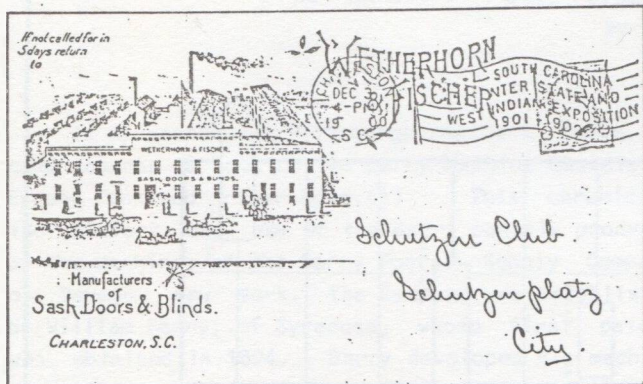 If not called for in
5 days return
to
WETHERHORN
FISCHER
CHARLESTON
DEC 3
4-PM
19 00
S.C.
SOUTH CAROLINA
INTER STATE AND
WEST INDIAN EXPOSITION
1901 - 1902
WETHERHORN & FISCHER.
SASH, DOORS & BLINDS.
Manufacturers
of
Sash, Doors & Blinds.
CHARLESTON, S.C.
Schutzen Club.
Schutzenplatz
City.